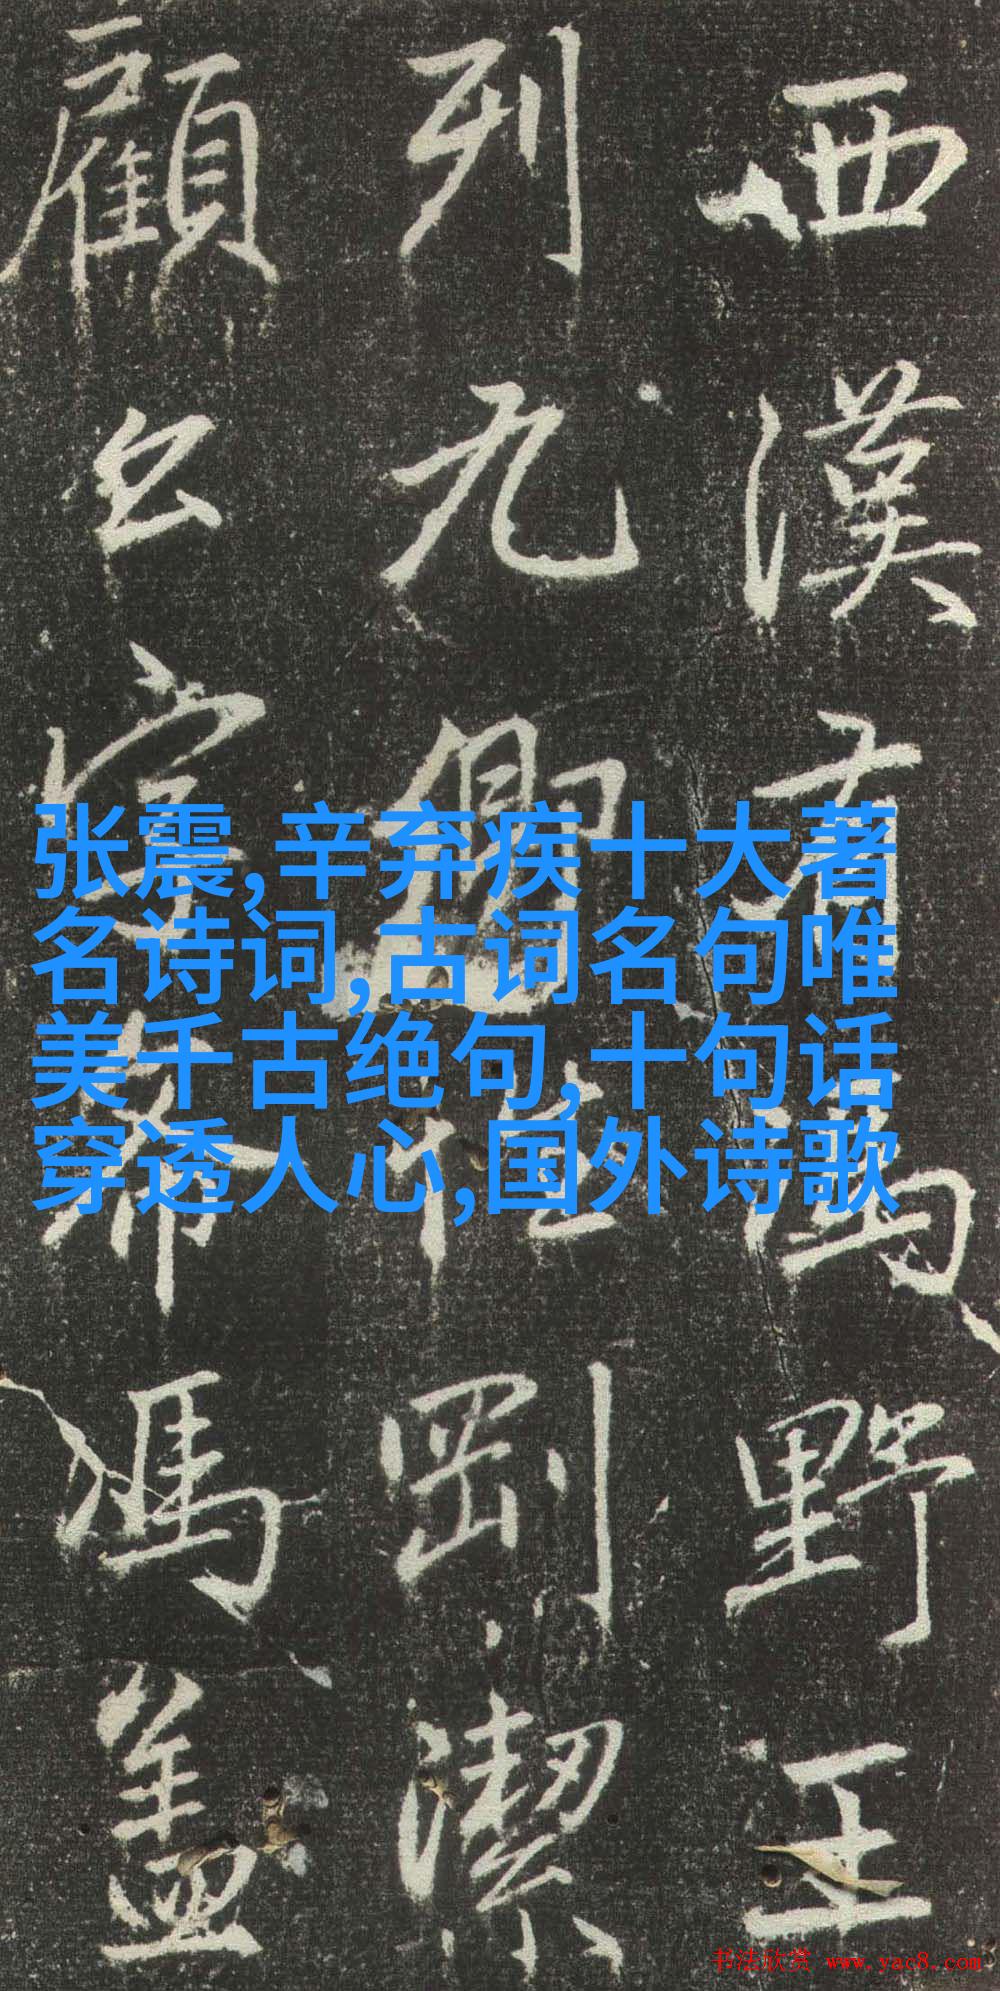 西漢有馮野王
列九卿性剛潔
顧公希馮盖
张震,辛弃疾十大著
名诗词,古词名句唯
美千古绝句,十句话
穿透人心,国外诗歌
书法欣赏 www.yac8.com